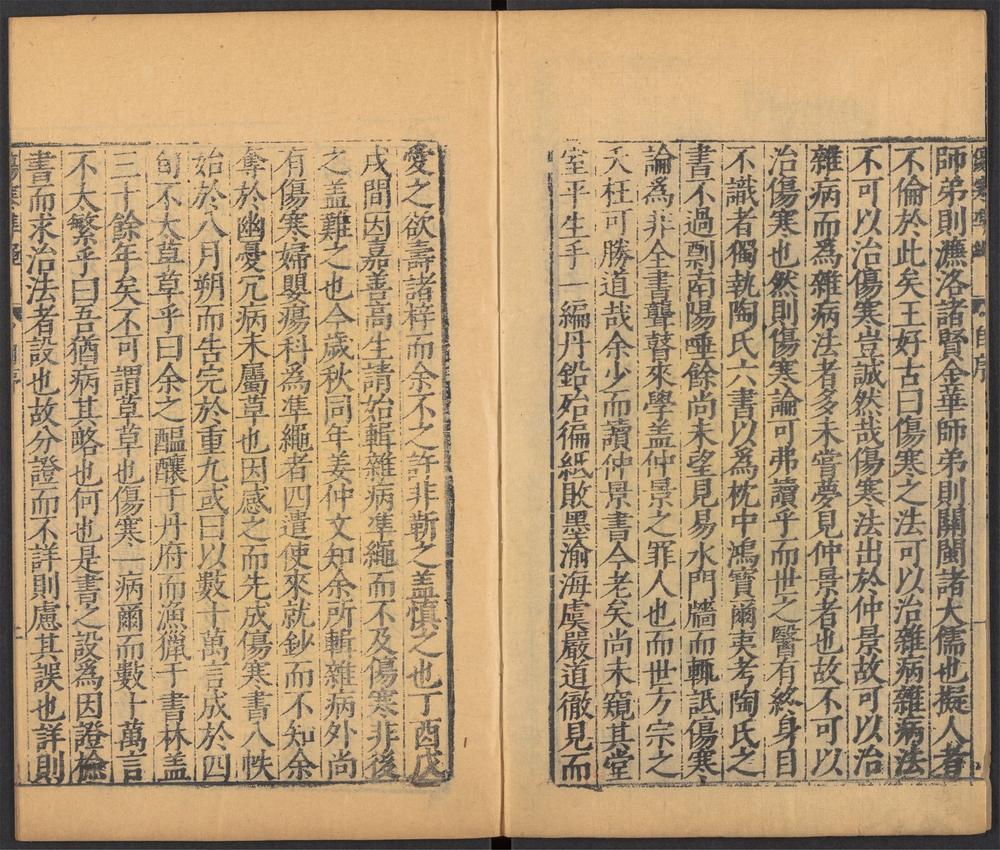 師弟則濂洛諸賢金華師弟則關閩諸大儒也擬人者
不倫於此矣王好古曰傷寒之法可以治雜病雜病法
不可以治傷寒豈誠然哉傷寒法出於仲景故可以治
雜病而爲雜病法者多未嘗夢見仲景者也故不可以
治傷寒也然則傷寒論可弗讀乎而世之醫有終身目
不識者獨執陶氏六書以爲枕中鴻寶爾夷考陶氏之
書不過剽南陽唾餘尚未望見易水門牆而輒詆傷寒
論爲非全書聾瞽來學蓋仲景之罪人也而世方宗之
夭枉可勝道哉余少而讀仲景書今老矣尚未窺其堂
室平生手一編丹鉛殆徧紙敗墨渝海虞嚴道徹見而
愛之欲壽諸梓而余不之許非靳之盖愼之也丁酉戊
戌間因嘉善高生請始輯雜病準繩而不及傷寒非後
之盖難之也今歲秋同年姜仲文知余所輯雜病外尚
有傷寒婦嬰瘍科爲準繩者四遣使來就鈔而不知余
奪於幽憂冗病未屬草也因感之而先成傷寒書八帙
始於八月朔而告完於重九或曰以數十萬言成於四
旬不太草草乎曰余之醞釀于丹府而漁獵于書林盖
三十餘年矣不可謂草草也傷寒一病爾而數十萬言
不太繁乎曰吾猶病其略也何也是書之設爲因證檢
書而求治法者設也故分證而不詳則慮其誤也詳則